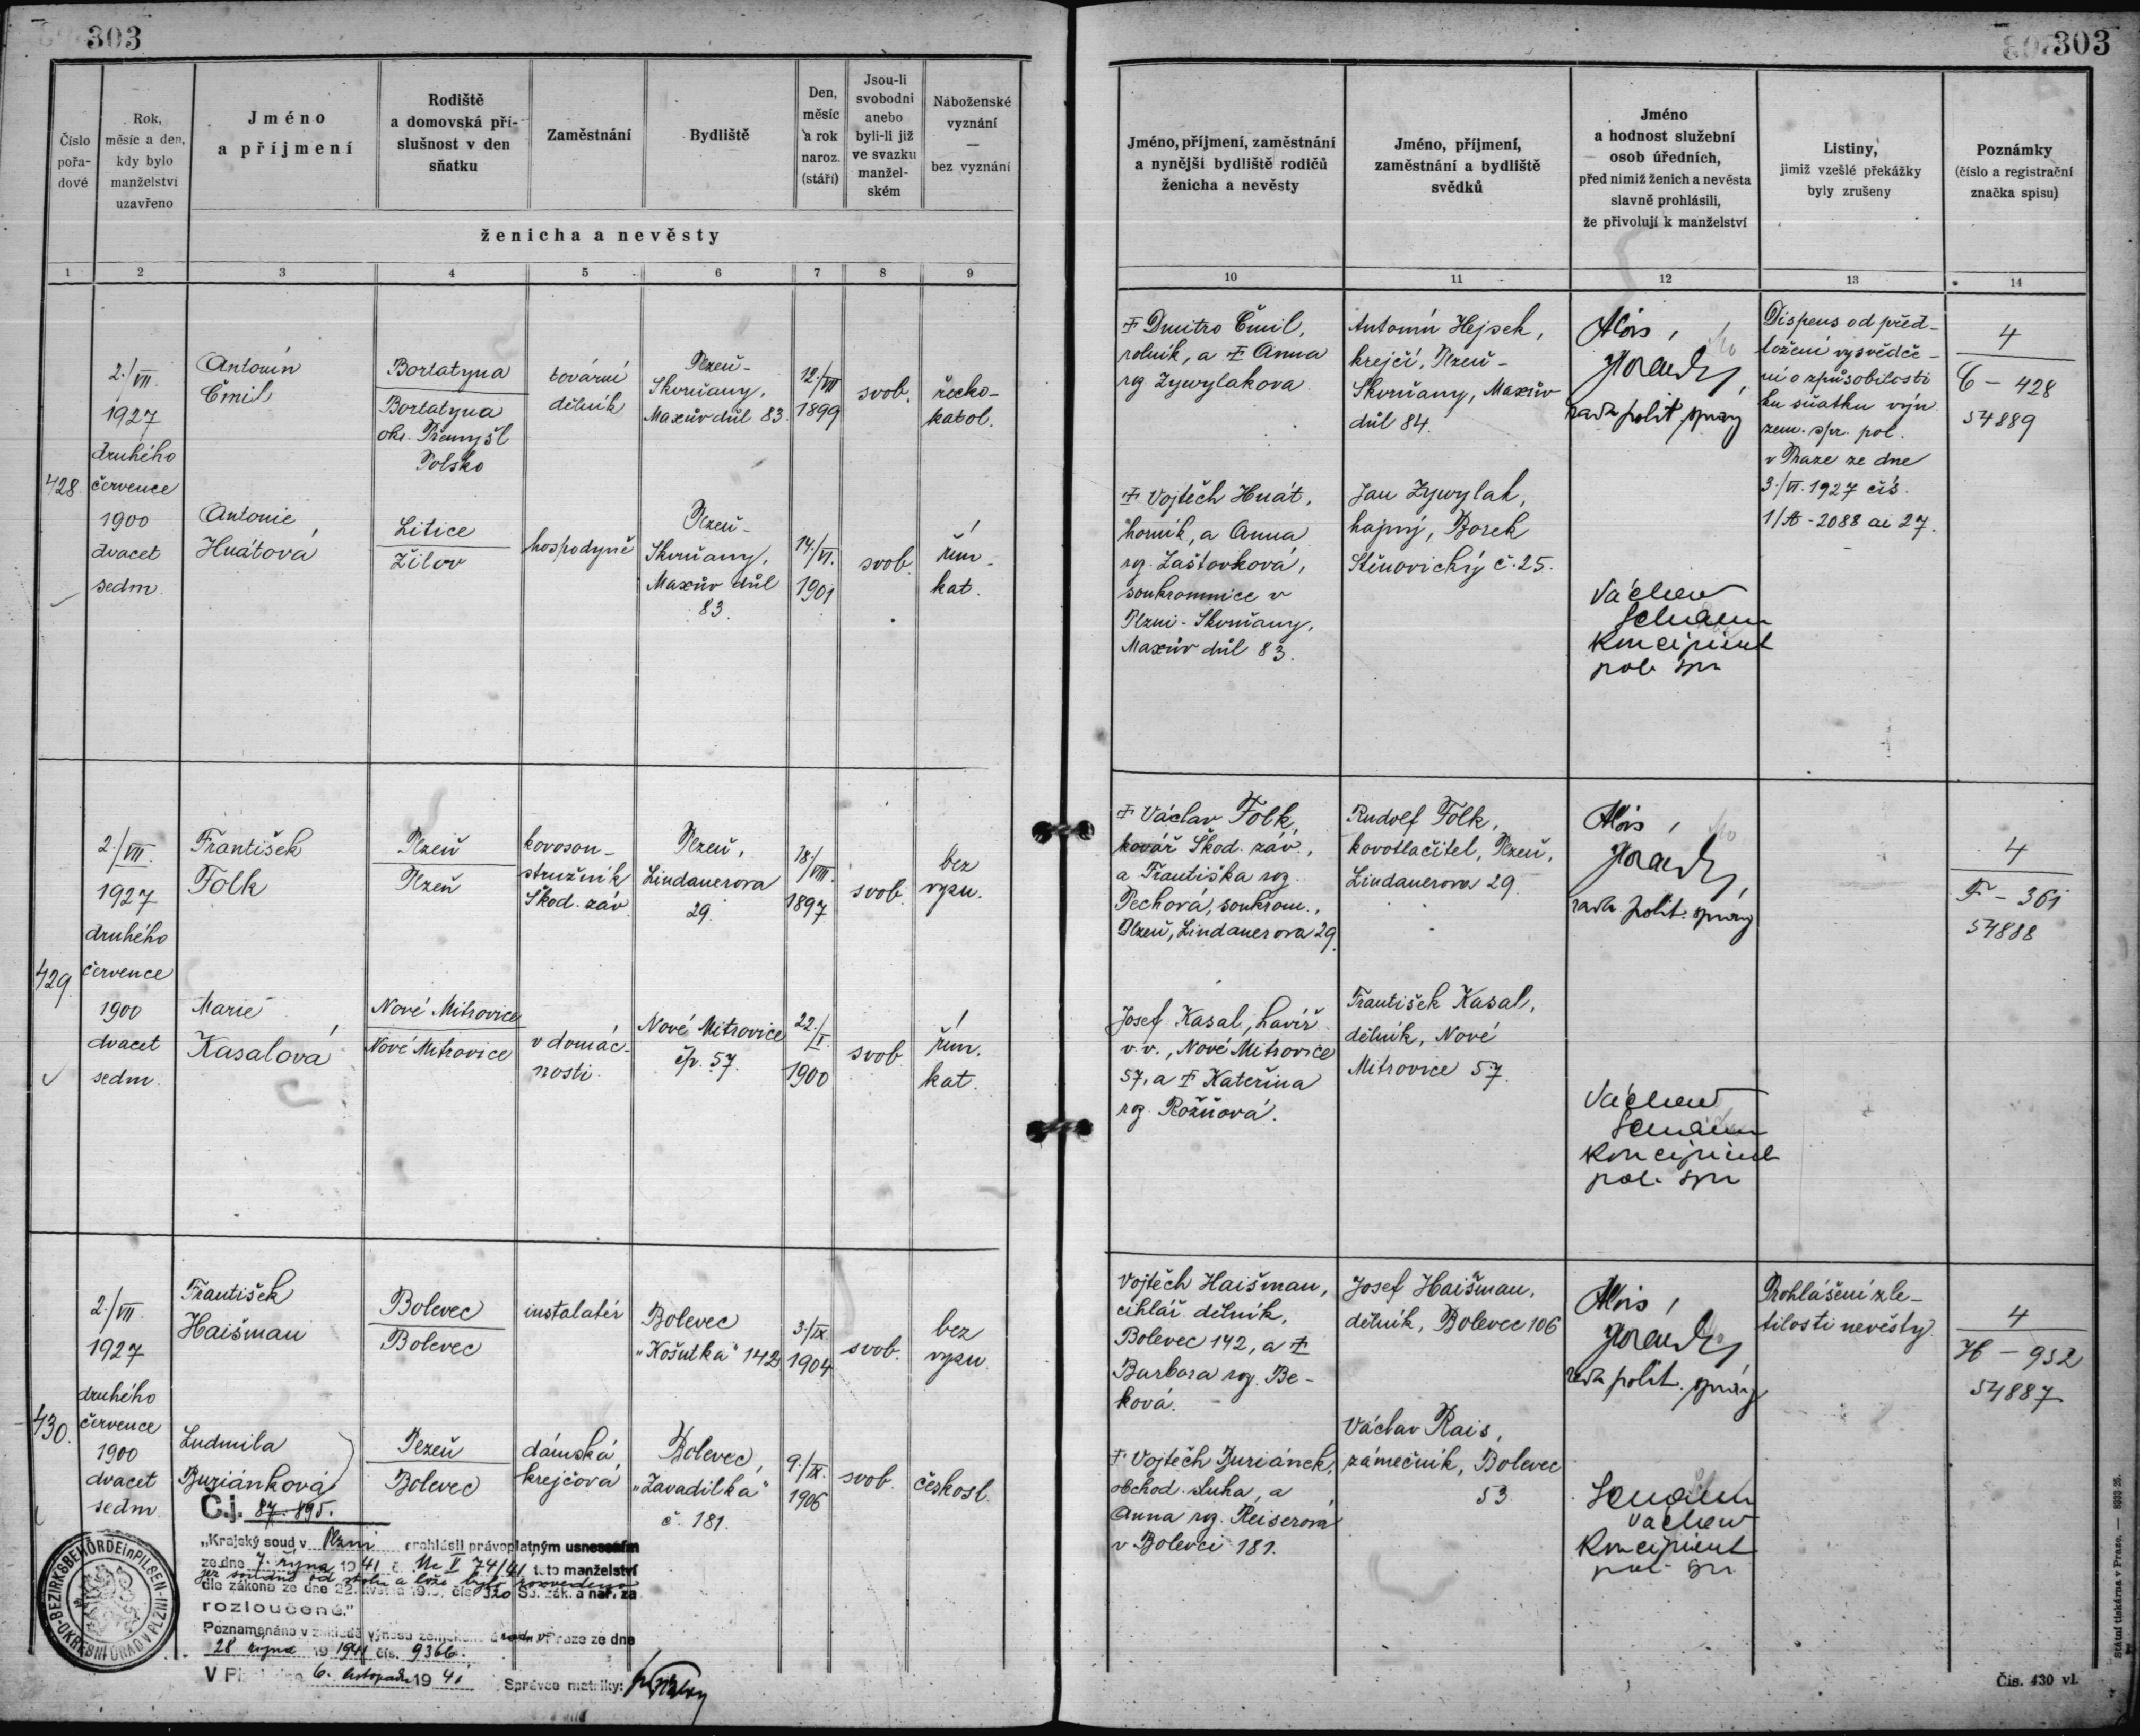 303
Číslo
pořa-
dové
Rok,
měsíc a den,
kdy bylo
manželství
uzavřeno
Jméno
a příjmení
Rodiště
a domovská pří-
slušnost v den
sňatku
Zaměstnání
Bydliště
Den,
měsíc
a rok
naroz.
(stáří)
Jsou-li
svobodni
anebo
byli-li již
ve svazku
manžel-
ském
Náboženské
vyznání
—
bez vyznání
ženicha a nevěsty
1 2 3 4 5 6 7 8 9
428.
2./VII.
1927
druhého
července
1900
dvacet
sedm.
Antonín
Čmil
Bortatyna
Bortatyna
okr. Přemyšl
Polsko
tovární
dělník
Plzeň-
Skvrňany,
Maxův důl 83.
12./VII
1899
svob.
řecko-
katol.
Antonie
Hnátová
Litice
Žilov
hospodyně
Plzeň-
Skvrňany,
Maxův důl
83.
14./VI.
1901
svob.
řím-
kat.
429.
2./VII.
1927
druhého
července
1900
dvacet
sedm.
František
Folk
Plzeň
Plzeň
kovosou-
stružník
Škod. záv.
Plzeň,
Lindauerova
29.
18./VIII.
1897
svob.
bez
vyzn.
Marie
Kasalová
Nové Mitrovice
Nové Mitrovice
v domác-
nosti.
Nové Mitrovice
čp. 57.
22./I.
1900
svob.
řím.
kat.
430.
2./VII
1927
druhého
července
1900
dvacet
sedm.
František
Haišman
Bolevec
Bolevec
instalatér
Bolevec
"Košutka" 142
3./IX.
1904
svob.
bez
vyzn.
Ludmila
Buriánková
Plzeň
Bolevec
dámská
krejčová
Bolevec,
"Zavadilka"
č. 181.
9./IX.
1906
svob.
českosl.
Č.j. 87.895.
„Krajský soud v Plzni prohlásil právoplatným usnesením
ze dne 7. října 1941 č. Nc V 74/41 toto manželství
jež soudně od stolu a lože bylo rozvedeno
dle zákona ze dne 22. května 1919, čís. 320 Sb. zák. a nař. za
rozloučené."
Poznamenáno v základě výnosu zemského úřadu v Praze ze dne
28 října 1941 čís. 9366.
6. listopadu 1941
Správce matriky:
BEZIRKSBEHÖRDE in PILSEN
OKRESNÍ ÚŘAD V PLZNI
303
Jméno, příjmení, zaměstnání
a nynější bydliště rodičů
ženicha a nevěsty
Jméno, příjmení,
zaměstnání a bydliště
svědků
Jméno
a hodnost služební
osob úředních,
před nimiž ženich a nevěsta
slavně prohlásili,
že přivolují k manželství
Listiny,
jimiž vzešlé překážky
byly zrušeny
Poznámky
(číslo a registrační
značka spisu)
10 11 12 13 14
† Dmitro Čmil,
rolník, a † Anna
roz Zywylakova.
Antonín Hejsek,
krejčí, Plzeň-
Skvrňany, Maxův
důl 84.
Alois
rada polit správy
Dispens od před-
ložení vysvědče-
ní o způsobilosti
ku sňatku výn.
zem. spr. pol.
v Praze ze dne
3./VI. 1927 čís.
1/A-2088 ai 27.
4
Č - 428
54889
† Vojtěch Hnát,
horník, a Anna
roz. Laštovková,
soukromnice v
Plzni-Skvrňany,
Maxův důl 83.
Jan Zywylak,
hajný, Borek
Štěnovický č. 25.
Koncipient
pol. spr
† Václav Folk,
kovář Škod. záv.,
a Františka roz.
Pechová, soukrom.,
Plzeň, Lindauerova 29.
Rudolf Folk,
kovotlačitel, Plzeň,
Lindauerova 29.
Alois
rada polit. správy
4
F - 361
54888
Josef Kasal, havíř
v.v., Nové Mitrovice
57, a † Kateřina
roz. Rožňová.
František Kasal,
dělník, Nové
Mitrovice 57.
Koncipient
pol. spr
Vojtěch Haišman,
cihlář. dělník,
Bolevec 142, a †
Barbora roz. Be-
ková.
Josef Haišman,
dělník, Bolevec 106
Alois
rada polit. správy
Prohlášení zle-
tilosti nevěsty.
4
H - 952
54887
† Vojtěch Buriánek,
obchod. sluha, a
Anna roz. Reiserová
v Bolevci 181.
Václav Rais,
zámečník, Bolevec
53.
Koncipient
pol. spr
Státní tiskárna v Praze. — 8333 25.
Čís. 430 vl.